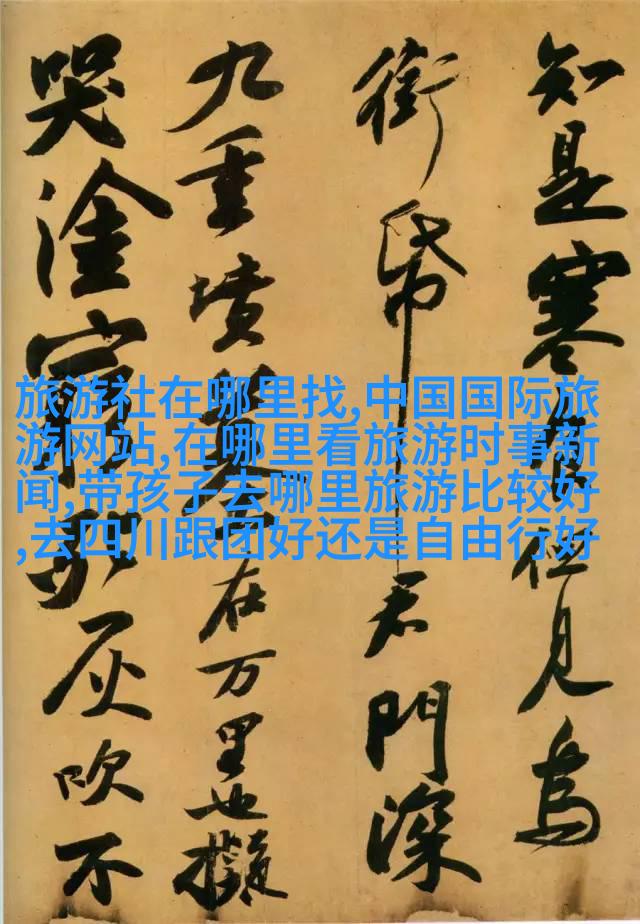 知是寒食但見烏
銜帋君門深
九重墳墓在万里也擬
哭塗窮死灰吹不
旅游社在哪里找,中国国际旅
游网站,在哪里看旅游时事新
闻,带孩子去哪里旅游比较好
,去四川跟团好还是自由行好